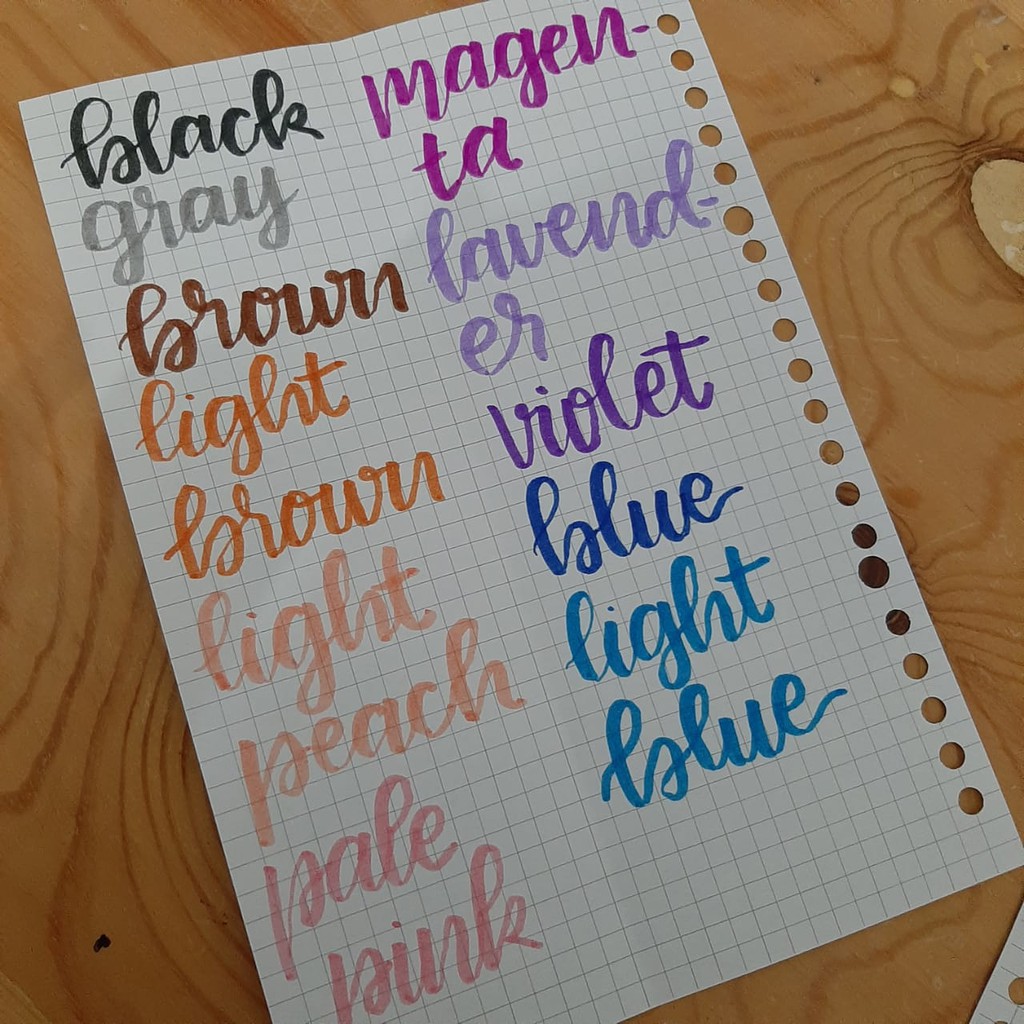 black
gray
brown
light
brown
light
peach
pale
pink
magen-
ta
lavend-
er
violet
blue
light
blue